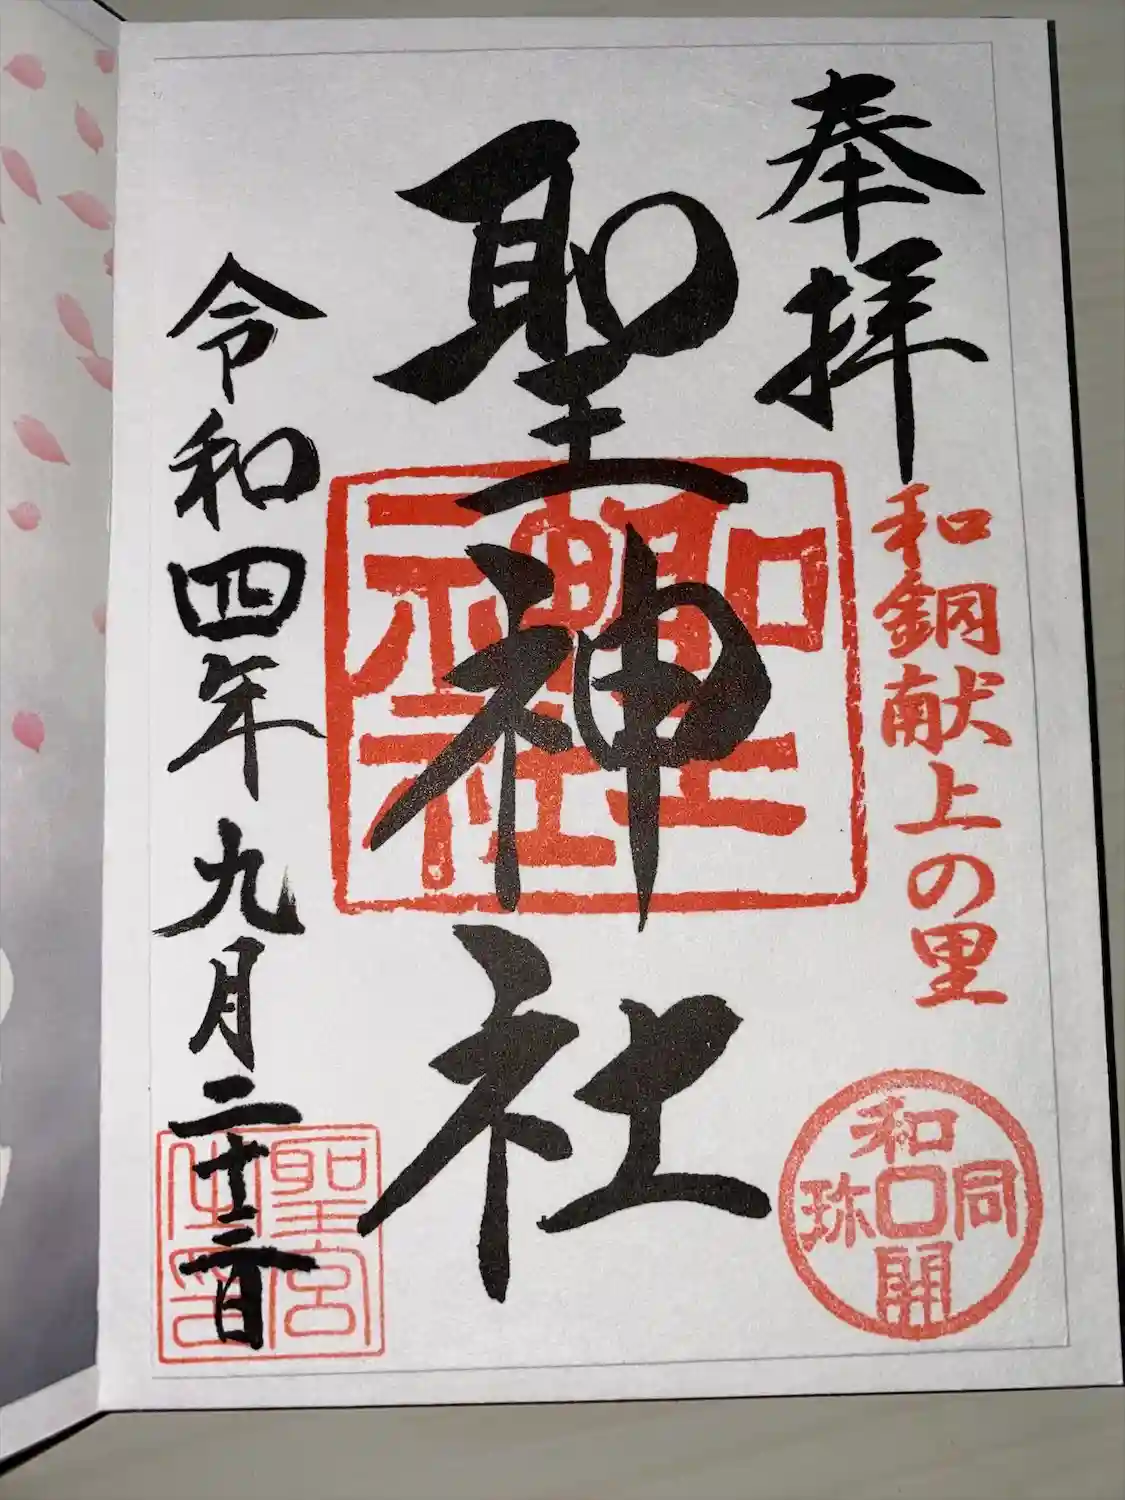 奉拝
和銅献上の里
和同開珎
聖神社
聖神社
令和四年九月二十三日
聖宮